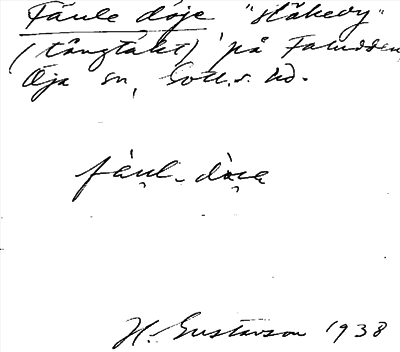 Faule döje "släkevy"
(tångtäkt) på Faludden
Öja sn, Gotl. s. hd.
fàu̯l-dò̜i̯ę
H. Gustavson 1938